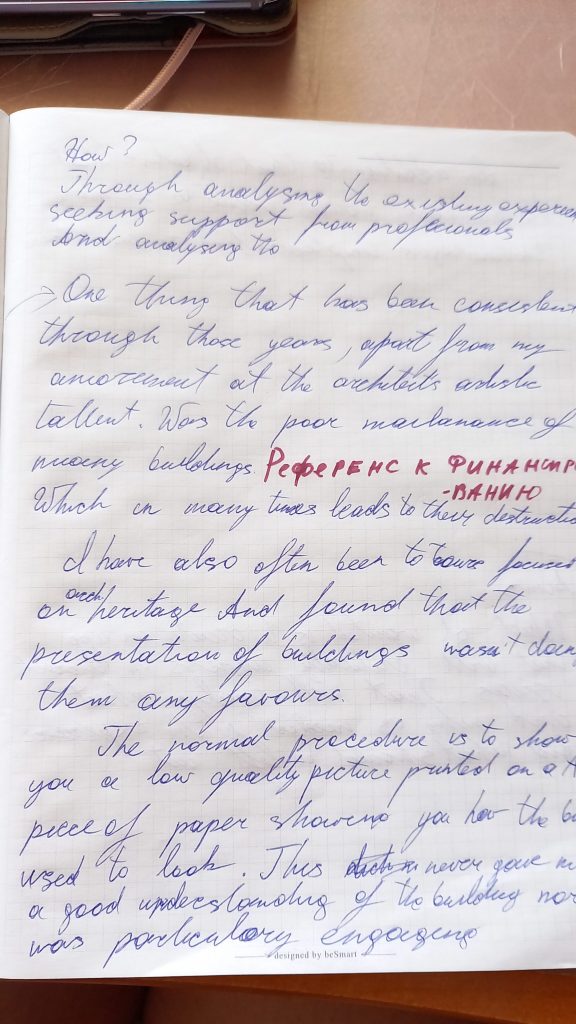 How?
Through analysing the existing experien
seeking support from profesionals
And analysing the
One thing that has been consistent
through those years, apart from my
amorement at the architects artistic
tallent. Was the poor maitanance of
many buildings. Референс к финансиро
-ванию
Which in many times leads to their destructio
I have also often been to tours focused
on arch heritage And found that the
presentation of buildings wasn't doing
them any favours.
The normal procedure is to show
you a low quality picture printed on a A
piece of paper showing you how the bu
used to look. This never gave m
a good understanding of the building nor
was particulary engaging
designed by beSmart